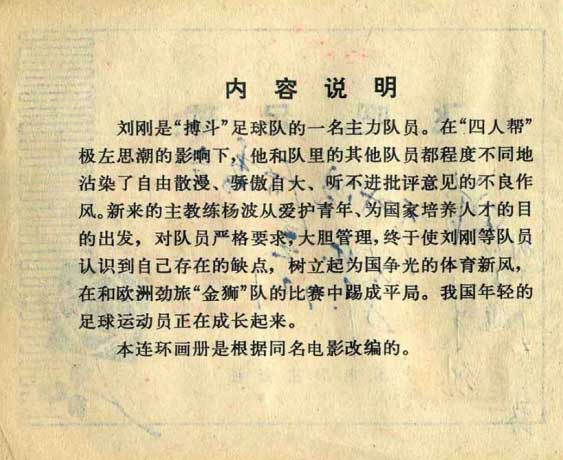 内容说明
刘刚是“搏斗”足球队的一名主力队员。在“四人帮”
极左思潮的影响下，他和队里的其他队员都程度不同地
沾染了自由散漫、骄傲自大、听不进批评意见的不良作
风。新来的主教练杨波从爱护青年、为国家培养人才的目
的出发，对队员严格要求，大胆管理，终于使刘刚等队员
认识到自己存在的缺点，树立起为国争光的体育新风，
在和欧洲劲旅“金狮”队的比赛中踢成平局。我国年轻的
足球运动员正在成长起来。
本连环画册是根据同名电影改编的。